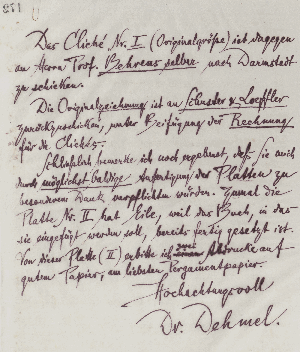 Das Cliché Nr. I (Originalgröße) ist dagegen
an Herrn Prof. Behrens selber nach Darmstadt
zu schicken.
Die Originalzeichnung ist an Schuster & Loeffler
zurückzuschicken, unter Beifügung der Rechnung
für die Clichés.
Schließlich bemerke ich noch, daß Sie mich
durch möglichst baldige Anfertigung der Platten zu
besonderem Dank verpflichten würden. Zumal die
Platte Nr. II hat Eile, weil das Buch, in das
sie eingefügt werden soll, bereits fertig gesetzt ist.
Von dieser Platte (II) erbitte ich zwei Abdrucke auf
gutem Papier, am liebsten Pergamentpapier.
Hochachtungsvoll
Dr. Dehmel.